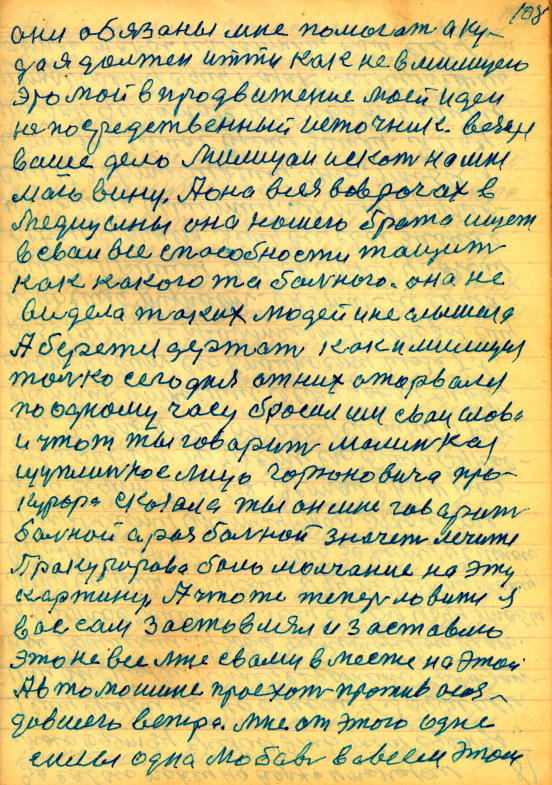 108
они обязаны мне помогат а ку-
да я должен итти как не в милицею
Это мой в продвижение моей идеи
непосредственный источник. везде
ваше дело Милицаи искат на мне
маю вину. А она вся во врочах в
Медицины она нашего брата ищет
в сваи все способности тащит
как какого та болного. она не
видела таких людей и не слышала
А берется держат как и милицыя
толко сегодня от них оторвался
по одному часу бросил им сваи слова
и чтож ты говарит малинкая
щуплинкое лицо Горюновича про-
курора сказала ты он мне гаварит
болной а раз болной значет лечите
Пракурорава было молчание на эту
картину. А что ти теперь ловити я
вас сам заставлял и заставлю
Это не все мне с вами вместе на этой
Автомошине проехат против
довшего ветра. мне от этого одне
силы одна любавь ва всем этом